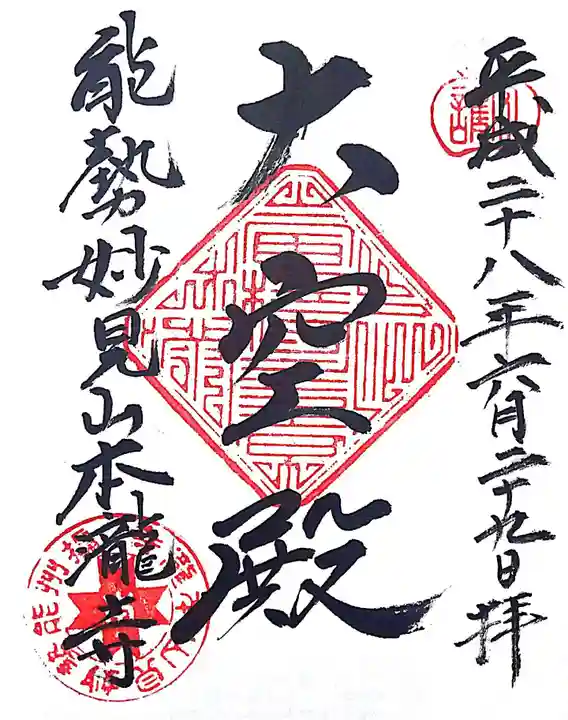 平成二十八年六月二十九日拝
大空殿
能勢妙見山本瀧寺